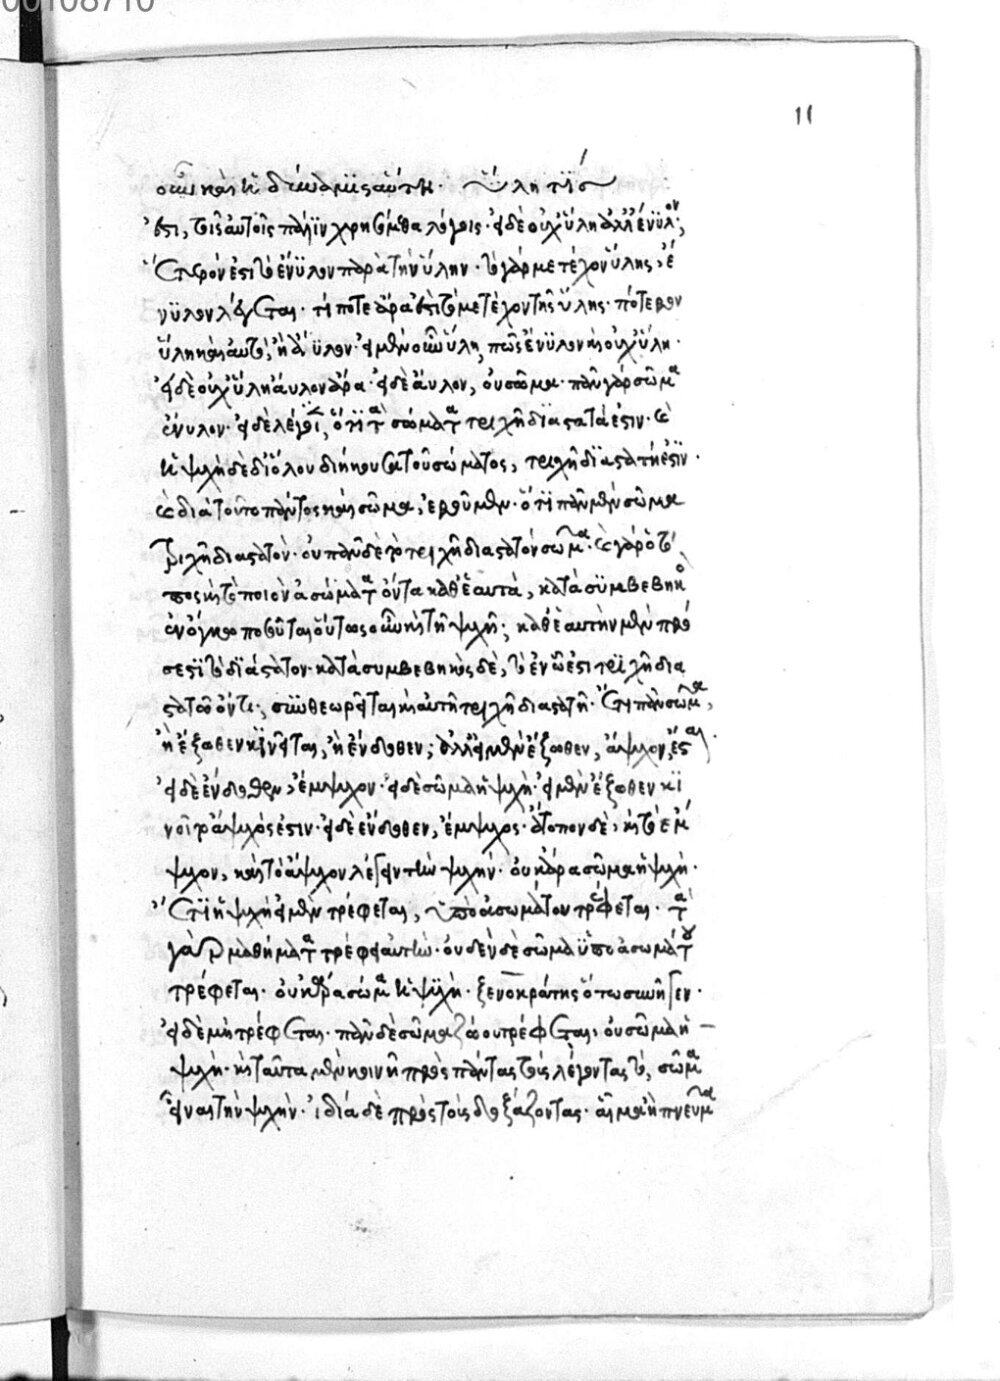 00108710
11
οὖν καὶ ἡ δύναμις αὕτη. ὕλη τίς
ἐστι, τοῖς αὐτοῖς πάλιν χρησόμεθα λόγοις. εἰ δὲ οὐχ ὕλη ἀλλ' ἔνυλον,
ἕτερον ἐστι τὸ ἔνυλον παρὰ τὴν ὕλην. τὸ γὰρ μετέχον ὕλης, ἔ
νυλον λέγεται. τί ποτε ἄρα ἐστὶ τὸ μετέχον τῆς ὕλης. πότερον
ὕλη καὶ αὐτό, ἢ ἄϋλον. εἰ μὲν οὖν ὕλη, πῶς ἔνυλον καὶ οὐχ ὕλη.
εἰ δὲ οὐχ ὕλη ἄυλον ἄρα. εἰ δὲ ἄυλον, οὐ σῶμα. πᾶν γὰρ σῶμα
ἔνυλον. εἰ δὲ λέγοι, ὅτι τὰ σώματα τριχῆ διαστατά ἐστιν. καὶ
ἡ ψυχὴ δὲ δι' ὅλου διήκουσα τοῦ σώματος, τριχῆ διαστατή ἐστιν.
καὶ διὰ τοῦτο πάντως καὶ σῶμα, ἐροῦμεν. ὅτι πᾶν μὲν σῶμα
τριχῆ διαστατόν. οὐ πᾶν δὲ τὸ τριχῆ διαστατόν σῶμα. καὶ γὰρ ὁ τό
πος καὶ τὸ ποιὸν ἀσώματα ὄντα καθ' ἑαυτά, κατὰ συμβεβηκὸς
ἐν ὄγκω ποσοῦται οὕτως οὖν καὶ τῆ ψυχῆ; καθ' ἑαυτὴν μὲν πρό
σεστι τὸ ἀδιάστατον κατὰ συμβεβηκὸς δὲ, τὸ ἐν ᾧ ἐστι τριχῆ δια
στατῶ ὄντι, συνθεωρεῖται καὶ αὐτὴ τριχῆ διαστατή. ἔτι πᾶν σῶμα,
ἢ ἔξωθεν κινεῖται, ἢ ἔνδοθεν; ἀλλ' εἰ μὲν ἔξωθεν, ἄψυχον ἔσται.
εἰ δὲ ἔνδοθεν, ἔμψυχον. εἰ δὲ σῶμα ἡ ψυχὴ. εἰ μὲν ἔξωθεν κι
νοῖτο ἄψυχός ἐστιν. εἰ δὲ ἔνδοθεν, ἔμψυχος. ἄτοπον δὲ, καὶ τὸ ἔμ
ψυχον, καὶ τὸ ἄψυχον λέγειν τὴν ψυχήν. οὐκ ἄρα σῶμα ἡ ψυχή.
ἔτι ἡ ψυχὴ εἰ μὲν τρέφεται, ὑπὸ ἀσωμάτου τρέφεται. τὰ
γὰρ μαθήματα τρέφει αὐτὴν. οὐδὲν δὲ σῶμα ὑπὸ ἀσωμάτου
τρέφεται. οὐκ ἄρα σῶμα ἡ ψυχή. ξενοκράτης οὕτω συνῆγεν.
εἰ δὲ μὴ τρέφεται. πᾶν δὲ σῶμα ζώου τρέφεται, οὐ σῶμα ἡ
ψυχὴ. καὶ ταῦτα μὲν κοινῆ πρὸς πάντας τοὺς λέγοντας τὸ, σῶμα
εἶναι τὴν ψυχὴν. ἰδία δὲ πρὸς τοὺς δοξάζοντας. αἷμα ἢ πνεῦμα